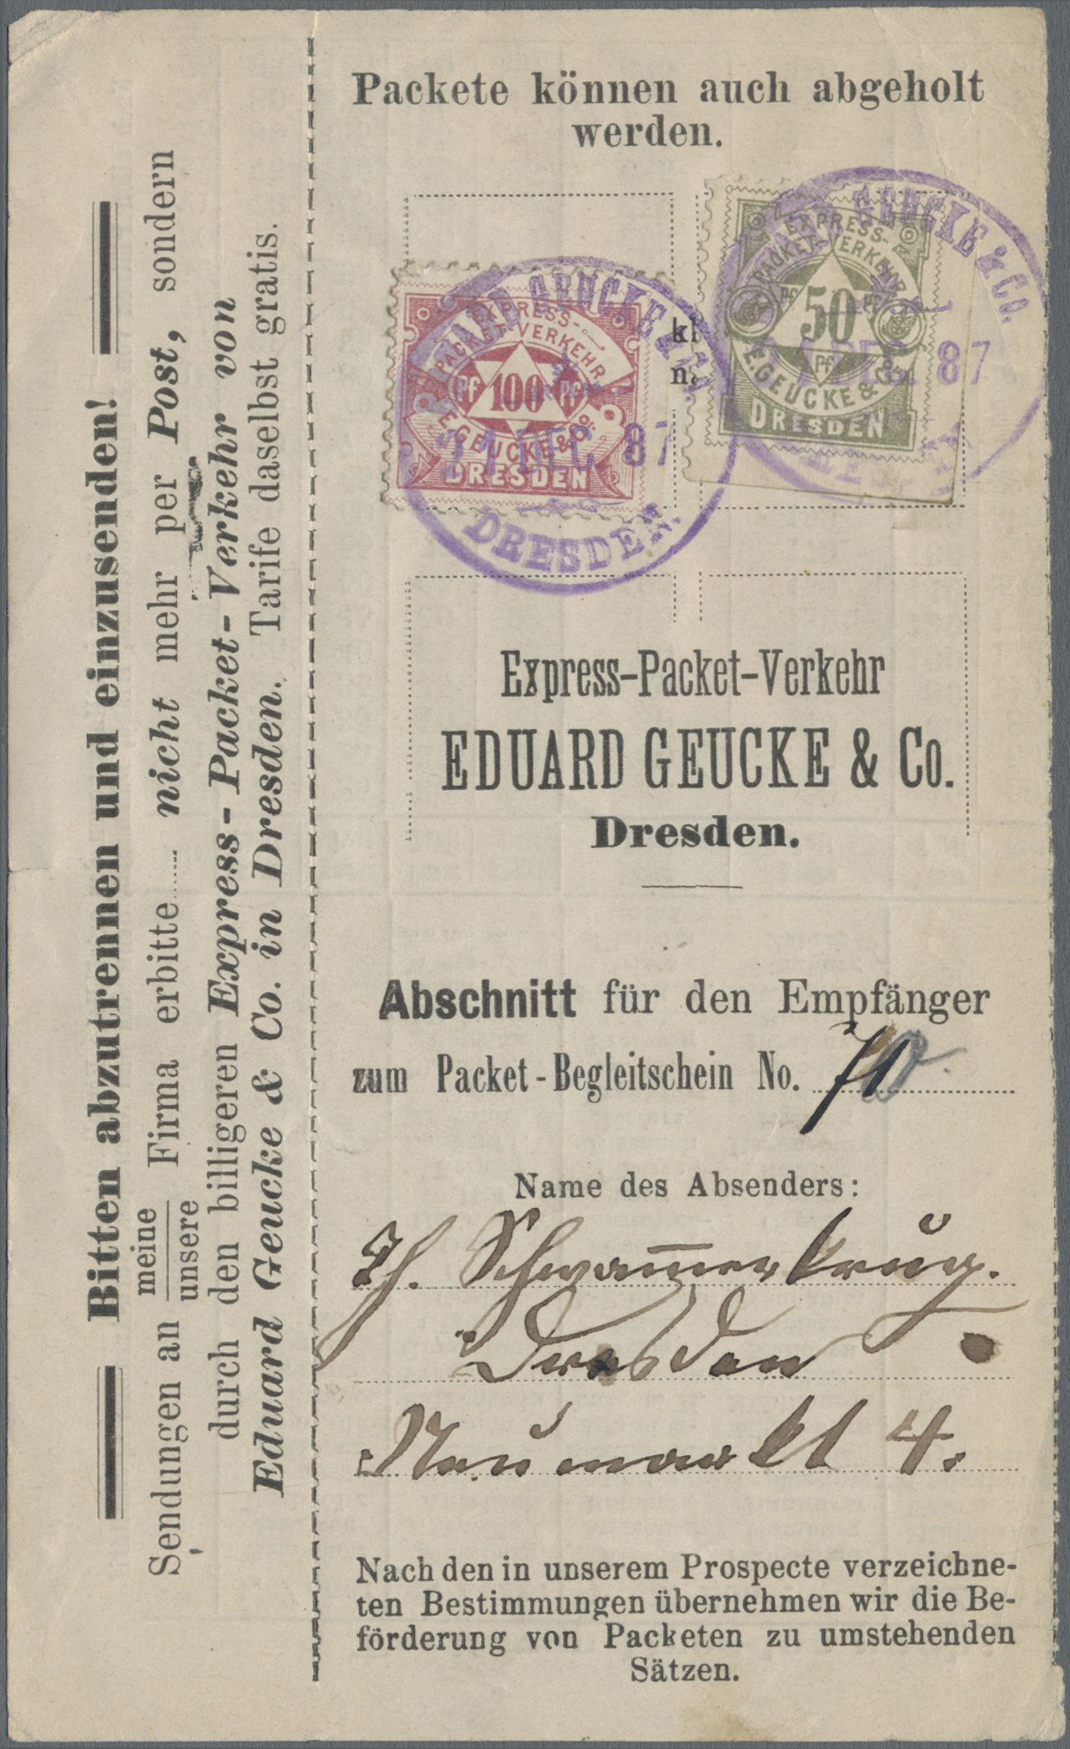 Bitten abzutrennen und einzusenden!
Sendungen an meine/unsere Firma erbitte..... nicht mehr per Post, sondern
durch den billigeren Express-Packet-Verkehr von
Eduard Geucke & Co. in Dresden. Tarife daselbst gratis.
Packete können auch abgeholt
werden.
GEUCKE & CO.
DEC 87
DRESDEN.
EXPRESS-
PACKET-VERKEHR
Pf 100 Pf
E. GEUCKE & Co.
DRESDEN
GEUCKE & CO.
DEC 87
EXPRESS-
PACKET VERKEHR
Pf 50 Pf
Pf
E. GEUCKE & Co.
DRESDEN
Express-Packet-Verkehr
EDUARD GEUCKE & Co.
Dresden.
Abschnitt für den Empfänger
zum Packet-Begleitschein No.
Name des Absenders:
Th. Schwam̄erkrug.
Dresden
Neumarkt 4.
Nach den in unserem Prospecte verzeichne-
ten Bestimmungen übernehmen wir die Be-
förderung von Packeten zu umstehenden
Sätzen.